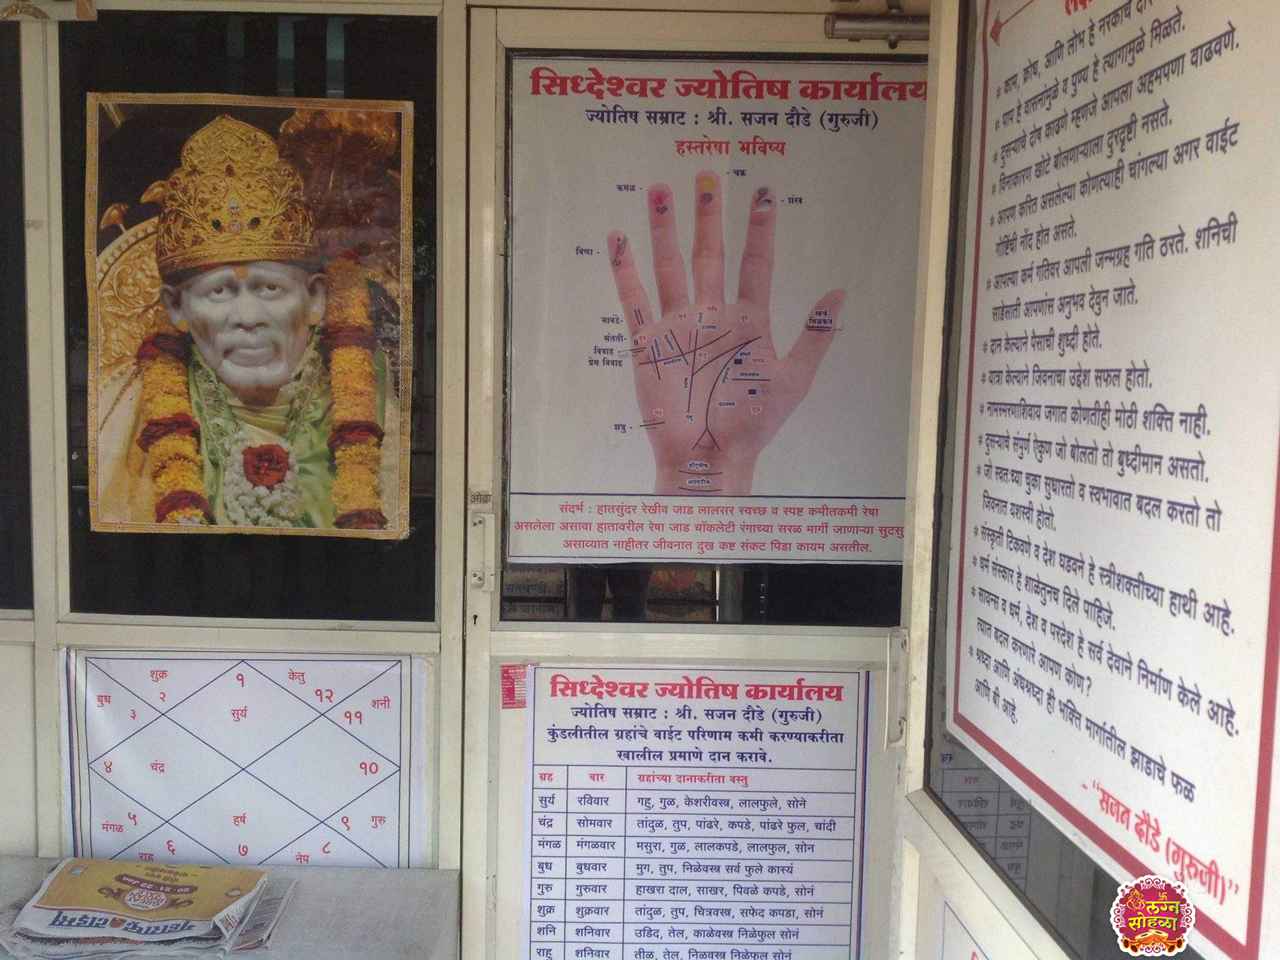 सिध्देश्वर ज्योतिष कार्यालय
ज्योतिष सम्राट : श्री. सजन दौडे (गुरुजी)
हस्तरेषा भविष्य
कमळ -
- चक्र
- शंख
संतती-
विवाह
प्रेम विवाह
शत्रु -
संदर्भ : हातसुंदर रेखीव जाड लालसर स्वच्छ व स्पष्ट कमीतकमी रेषा
असलेला असावा हातावरील रेषा जाड चॉकलेटी रंगाच्या सरळ मार्गी जाणाऱ्या सुटसु
असाव्यात नाहीतर जीवनात दुख कष्ट संकट पिडा कायम असतील.
शुक्र १ केतु
बुध २ १२ शनी
३ सुर्य ११
४ चंद्र १०
मंगळ ५ हर्ष ९ गुरु
राहु ६ ७ नेप ८
सिध्देश्वर ज्योतिष कार्यालय
ज्योतिष सम्राट : श्री. सजन दौडे (गुरुजी)
कुंडलीतील ग्रहांचे वाईट परिणाम कमी करण्याकरीता
खालील प्रमाणे दान करावे.
ग्रह वार ग्रहांच्या दानाकरीता वस्तु
सुर्य रविवार गहु, गुळ, केशरीवस्त्र, लालफुले, सोने
चंद्र सोमवार तांदुळ, तुप, पांढरे, कपडे, पांढरे फुल, चांदी
मंगळ मंगळवार मसुरा, गुळ, लालकपडे, लालफुल, सोन
बुध बुधवार मुग, तुप, निळेवस्त्र सर्व फुले कास्यं
गुरु गुरुवार हाखरा दाल, साखर, पिवळे कपडे, सोनं
शुक्र शुक्रवार तांदुळ, तुप, चित्रवस्त्र, सफेद कपडा, सोनं
शनि शनिवार उडिद, तेल, काळेवस्त्र निळेफुल सोनं
राहु शनिवार तीळ, तेल, निळवस्त्र निळेफुल सोनं
* काम, क्रोध, आणि लोभ हे नरकाचे
* पाप हे वासनांमुळे व पुण्य हे त्यागामुळे मिळते.
* दुसऱ्याचे दोष काढणे म्हणजे आपला अहमपणा वाढवणे.
* विनाकारण खोटे बोलणाऱ्याला दुरदृष्टी नसते.
* आपण करित असलेल्या कोणत्याही चांगल्या अगर वाईट
गोष्टिंची नोंद होत असते.
* आपल्या कर्म गतिवर आपली जन्मग्रह गति ठरते. शनिची
साडेसाती आपणांस अनुभव देवुन जाते.
* दान केल्याने पैसाची शुध्दी होते.
* यात्रा केल्याने जिवनाचा उद्देश सफल होतो.
* नामस्मरणाशिवाय जगात कोणतीही मोठी शक्ति नाही.
* दुसऱ्याचे संपुर्ण ऐकुण जो बोलतो तो बुध्दीमान असतो.
* जो स्वतःच्या चुका सुधारतो व स्वभावात बदल करतो तो
जिवनात यशस्वी होतो.
* संस्कृती टिकवणे व देश घडवने हे स्त्रीशक्तीच्या हाथी आहे.
* धर्म संस्कार हे शाळेतुनच दिले पाहिजे.
* सायन्स व धर्म, देश व परदेश हे सर्व देवाने निर्माण केले आहे.
त्यात बदल करणारे आपण कोण?
* श्रध्दा आणि अंधश्रध्दा ही भक्ति मार्गातील झाडाचे फळ
आणि बी आहे.
- "सजन दौडे (गुरुजी)"
लग्न
सोहळा